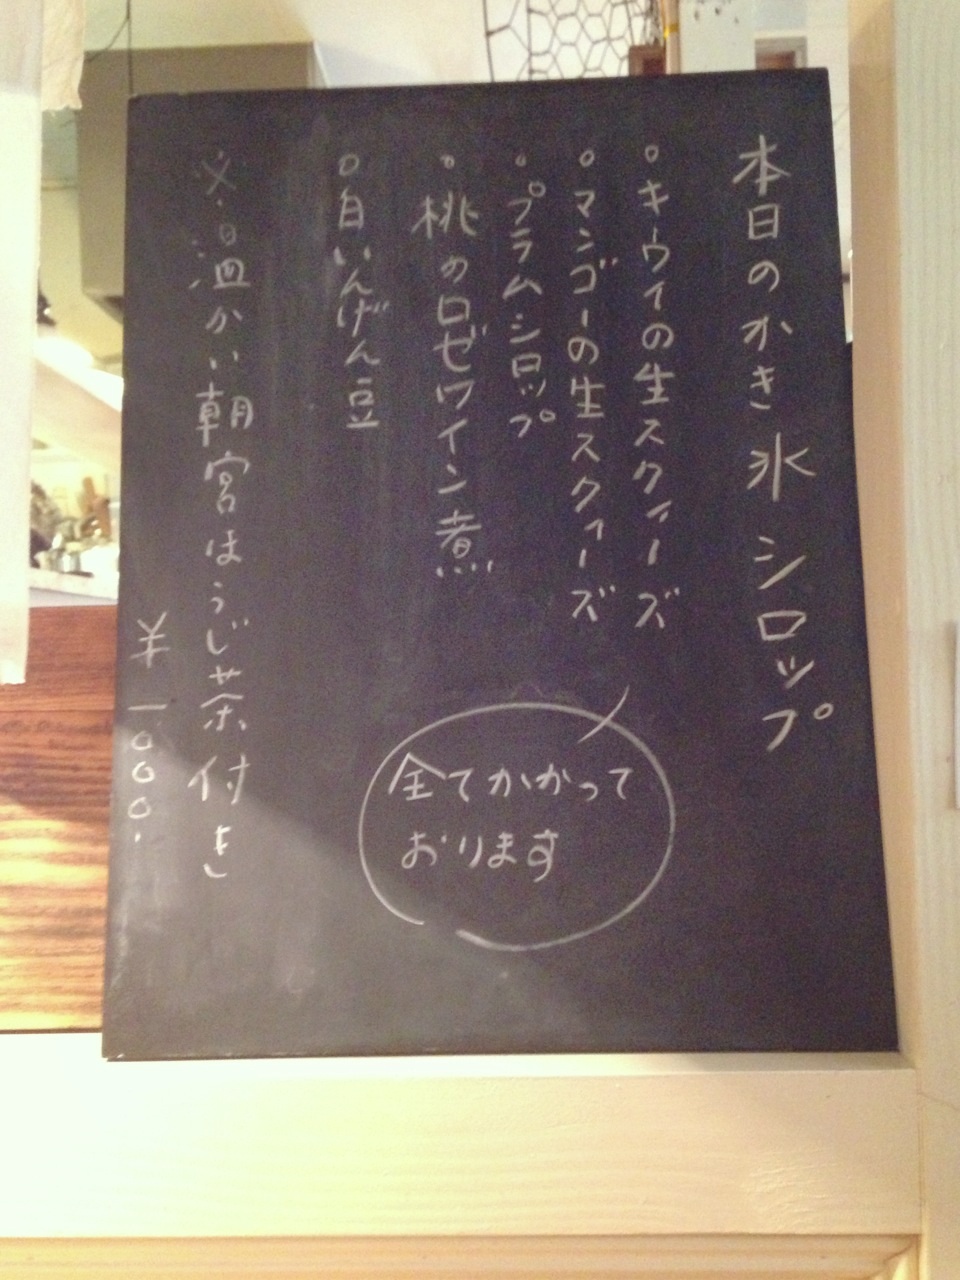 本日のかき氷シロップ
○キウイの生スクィーズ
○マンゴーの生スクィーズ
○プラムシロップ
○桃のロゼワイン煮
○白いんげん豆
全てかかって
おります
※温かい朝宮ほうじ茶付き
¥一〇〇〇.